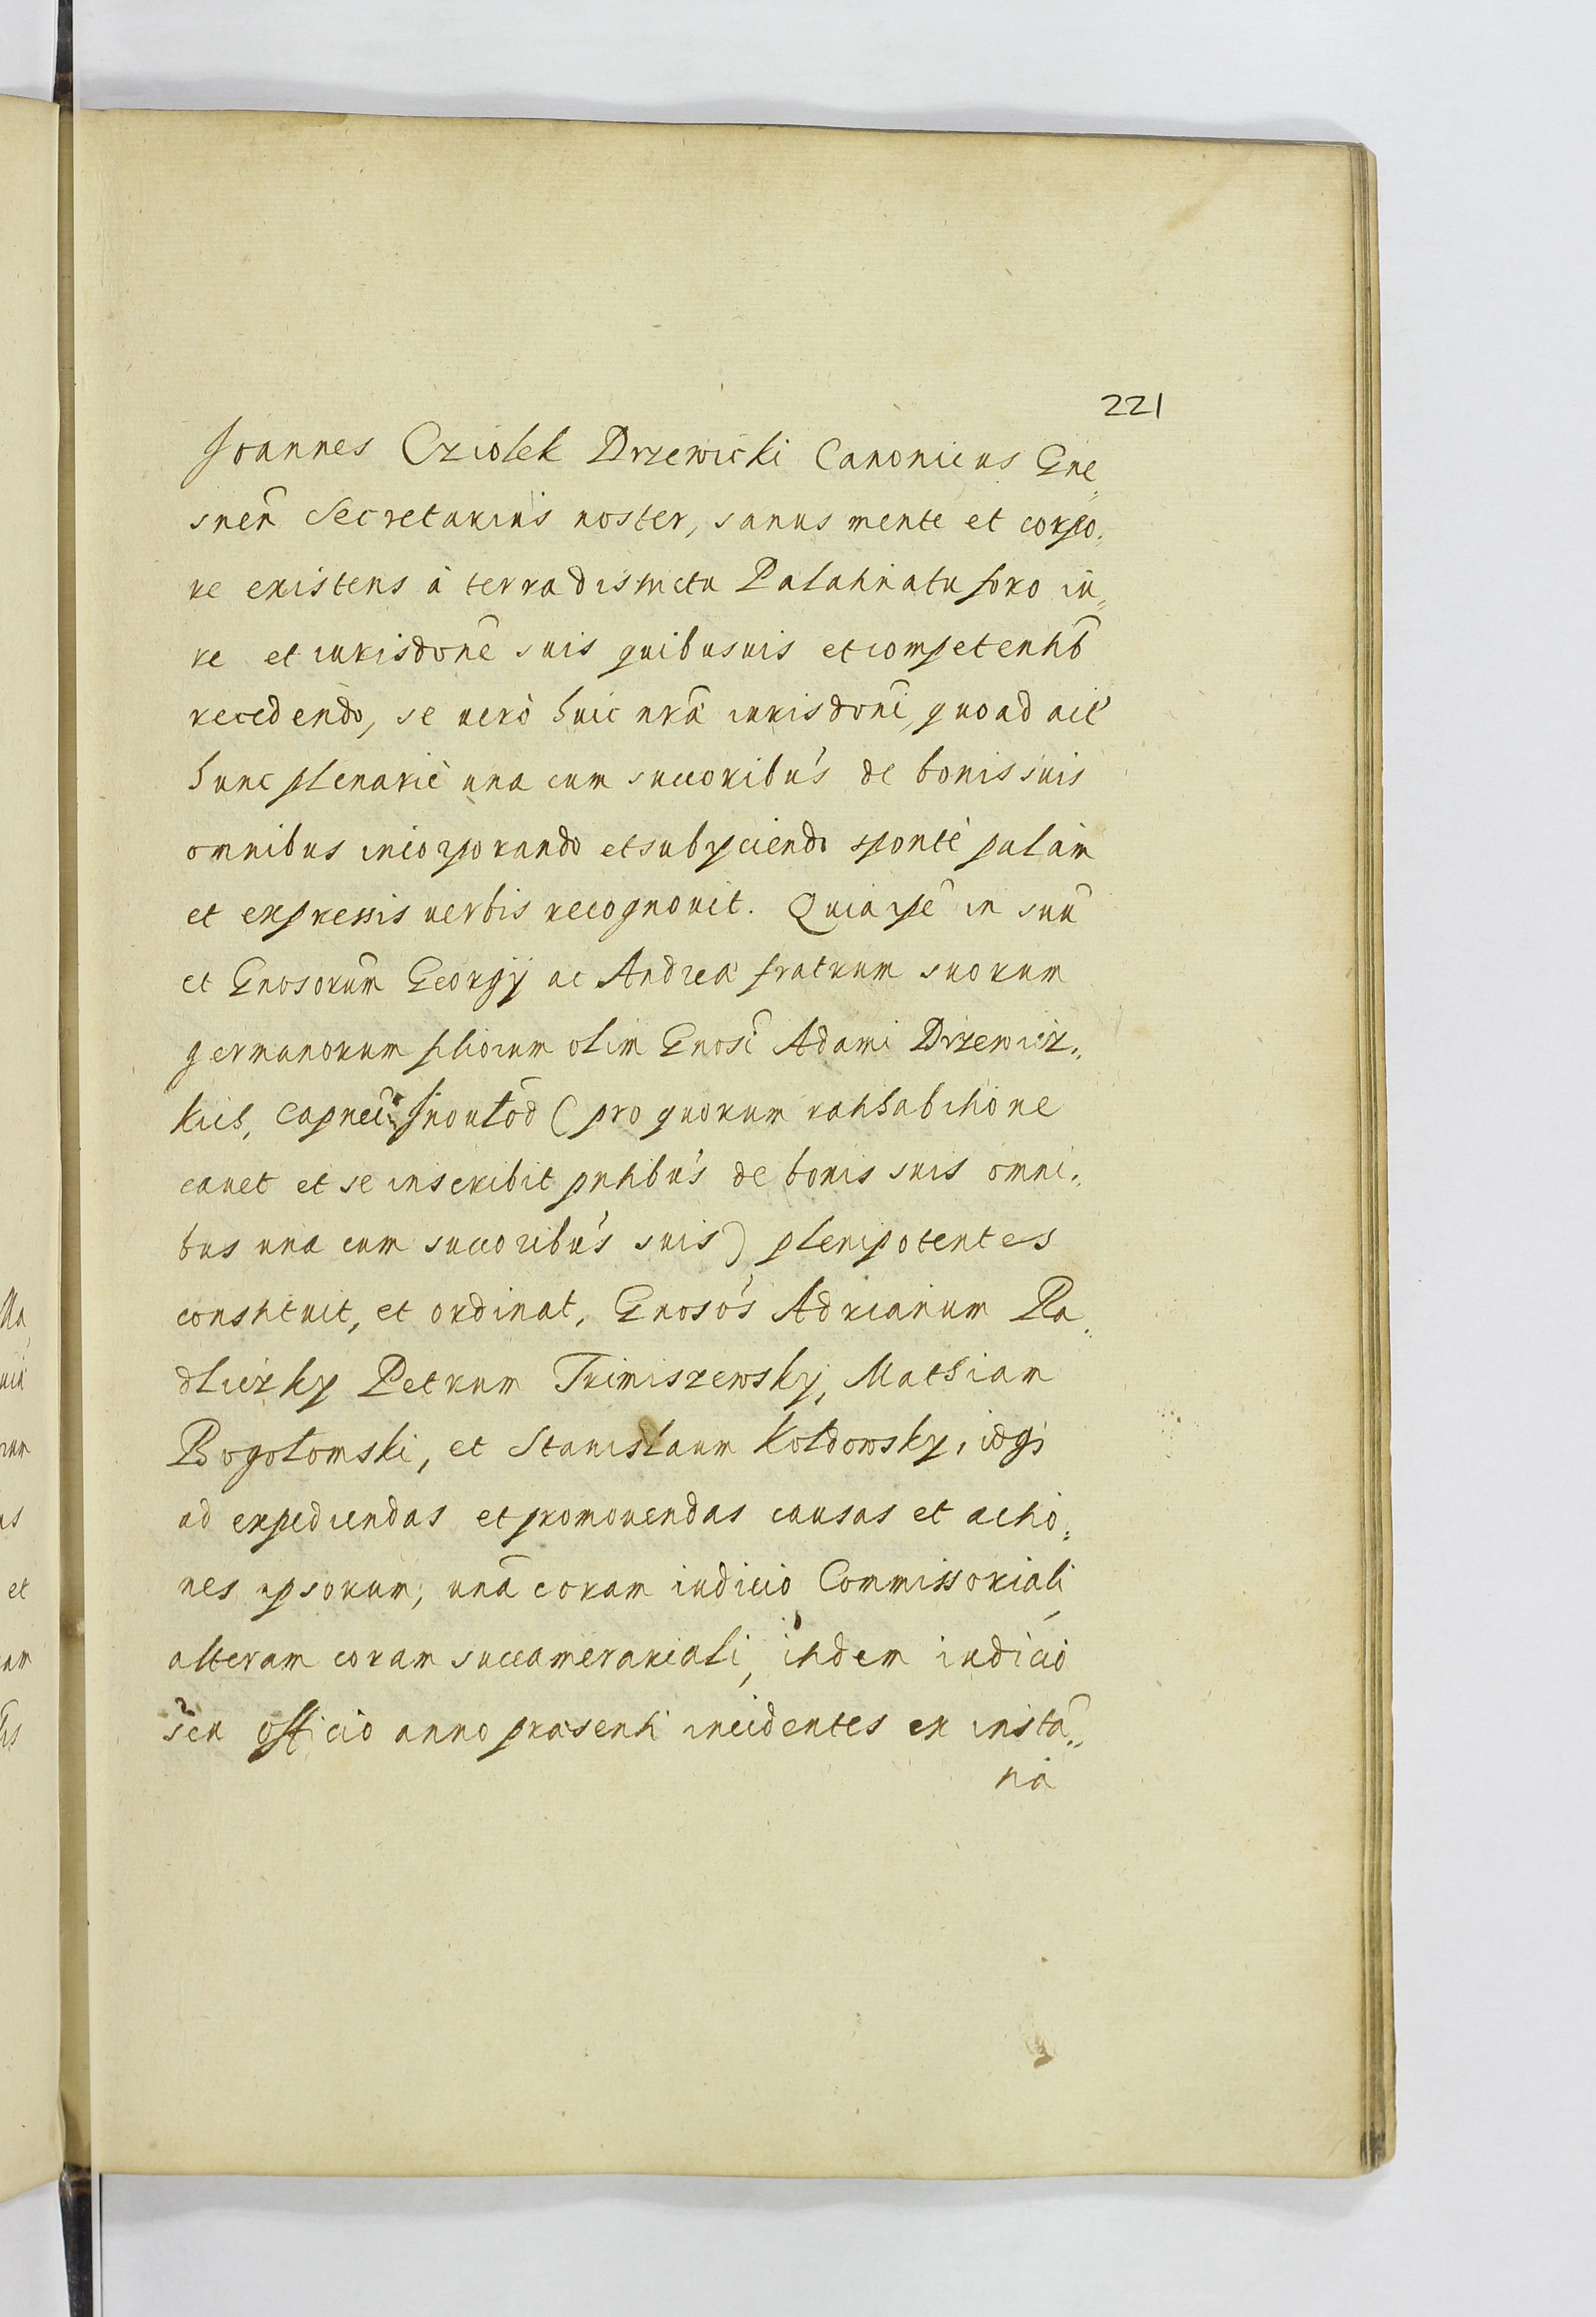 221
Joannes Cziolek Drzewicki Canonicus Gne„
snen̄ Secretarius noster, sanus mente et corpo„
re existens à terra districtu Palatinatu foro iu„
re et iurisdōne suis quibusuis et competentib̄
recedendo, se uerò huic nr̄a iurisdōni, quoad act́
hunc plenariè una cum succoribús de bonis suis
omnibus incorporando et subyciendo spontè palàm
et expressis uerbis recognouit. Quia ipe̅ in suū
et Gnosorum̄ Georgÿ ac Andrea fratrum suorum
germanorum filiorum olim Gnosī Adami Drzewicz„
kich, Capnei Jnoutōd (pro quorum ratihabitione
cauet et se inscribit pntibús de bonis suis omni„
bus una cum succoribús suis) plenipotentes
constituit, et ordinat, Gnosós Adrianum Pa„
dliczky Petrum Trimiszewsky, Mathiam
Bogołomski, et Stanisłaum Kołdowsky, idq́
ad expediendas et promouendas causas et actio„
nes ipsorum, unā coram iudicio Commissoriali
alteram coram succamerariali, itidem iudicio
seu officio anno præsenti incidentes ex instā„
tia